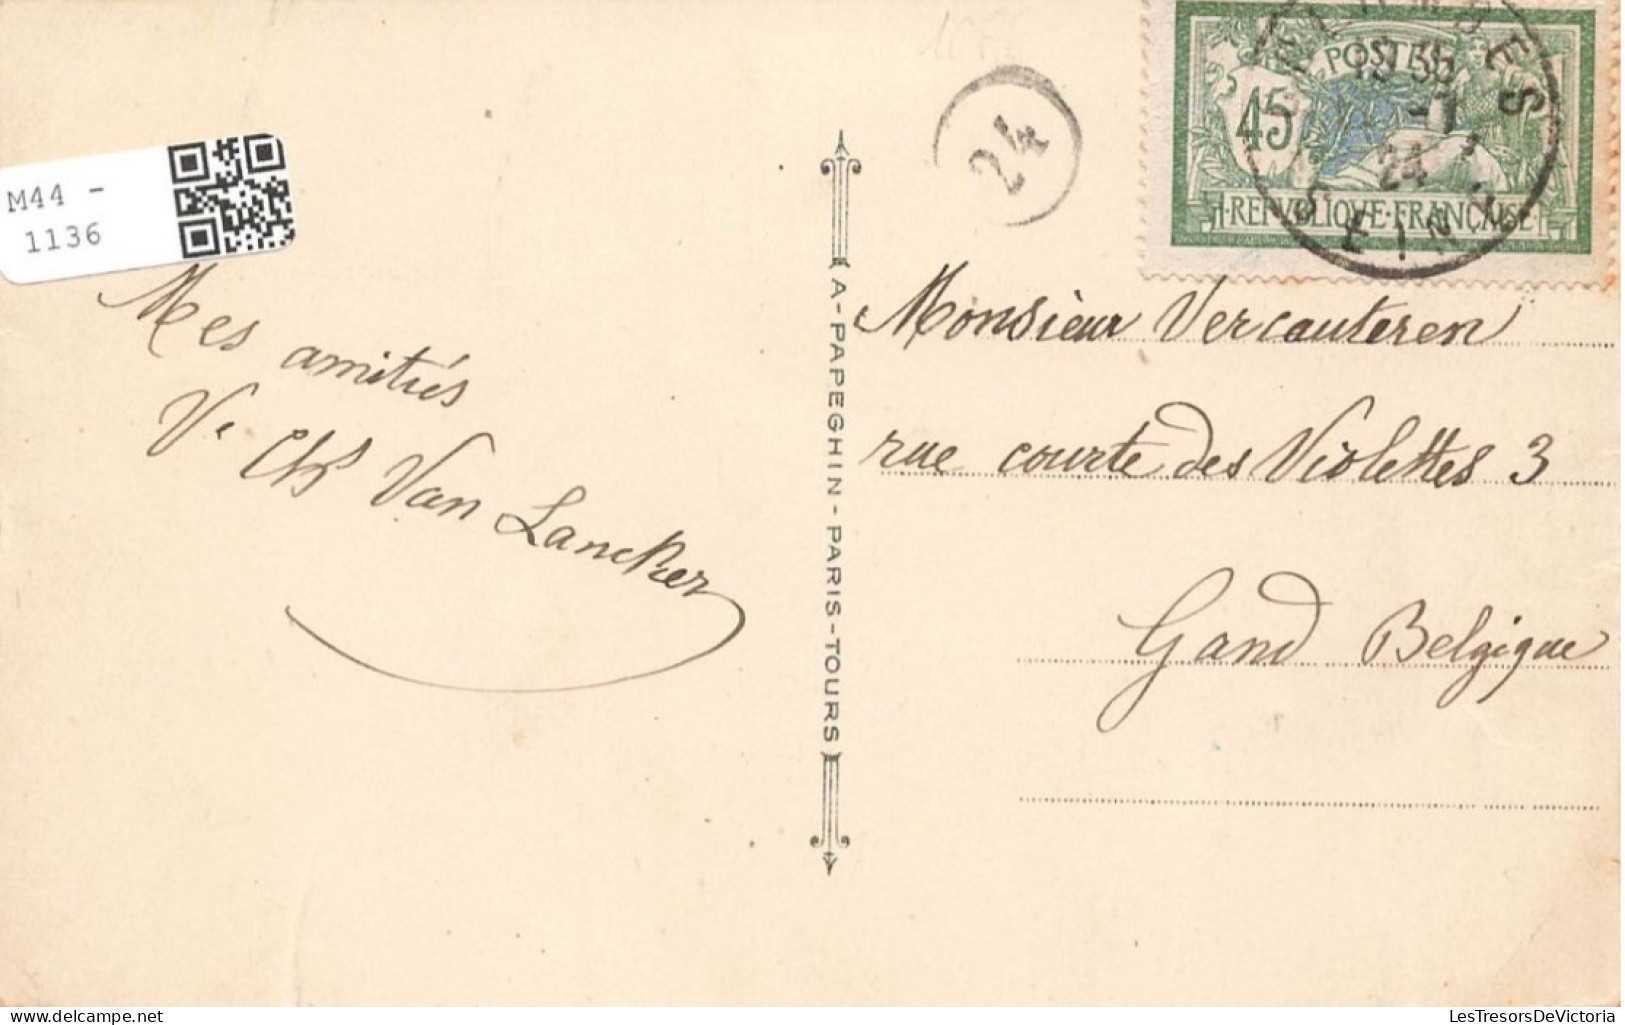 24
POSTES
45
REPUBLIQUE·FRANÇAISE
19 35
24
SEINE
M44 -
1136
Mes amitiés
Ve Chs Van Lancker
A-PAPEGHIN-PARIS-TOURS
Monsieur Vercauteren
rue courte des Violettes 3
Gand Belgique
LesTresorsDeVictoria